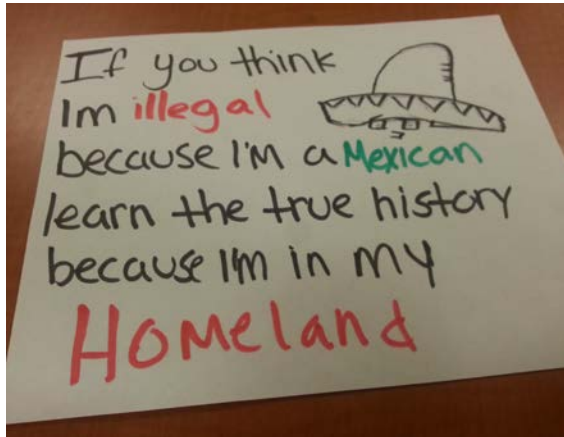 If you think
Im illegal
because I'm a Mexican
learn the true history
because I'm in my
Homeland